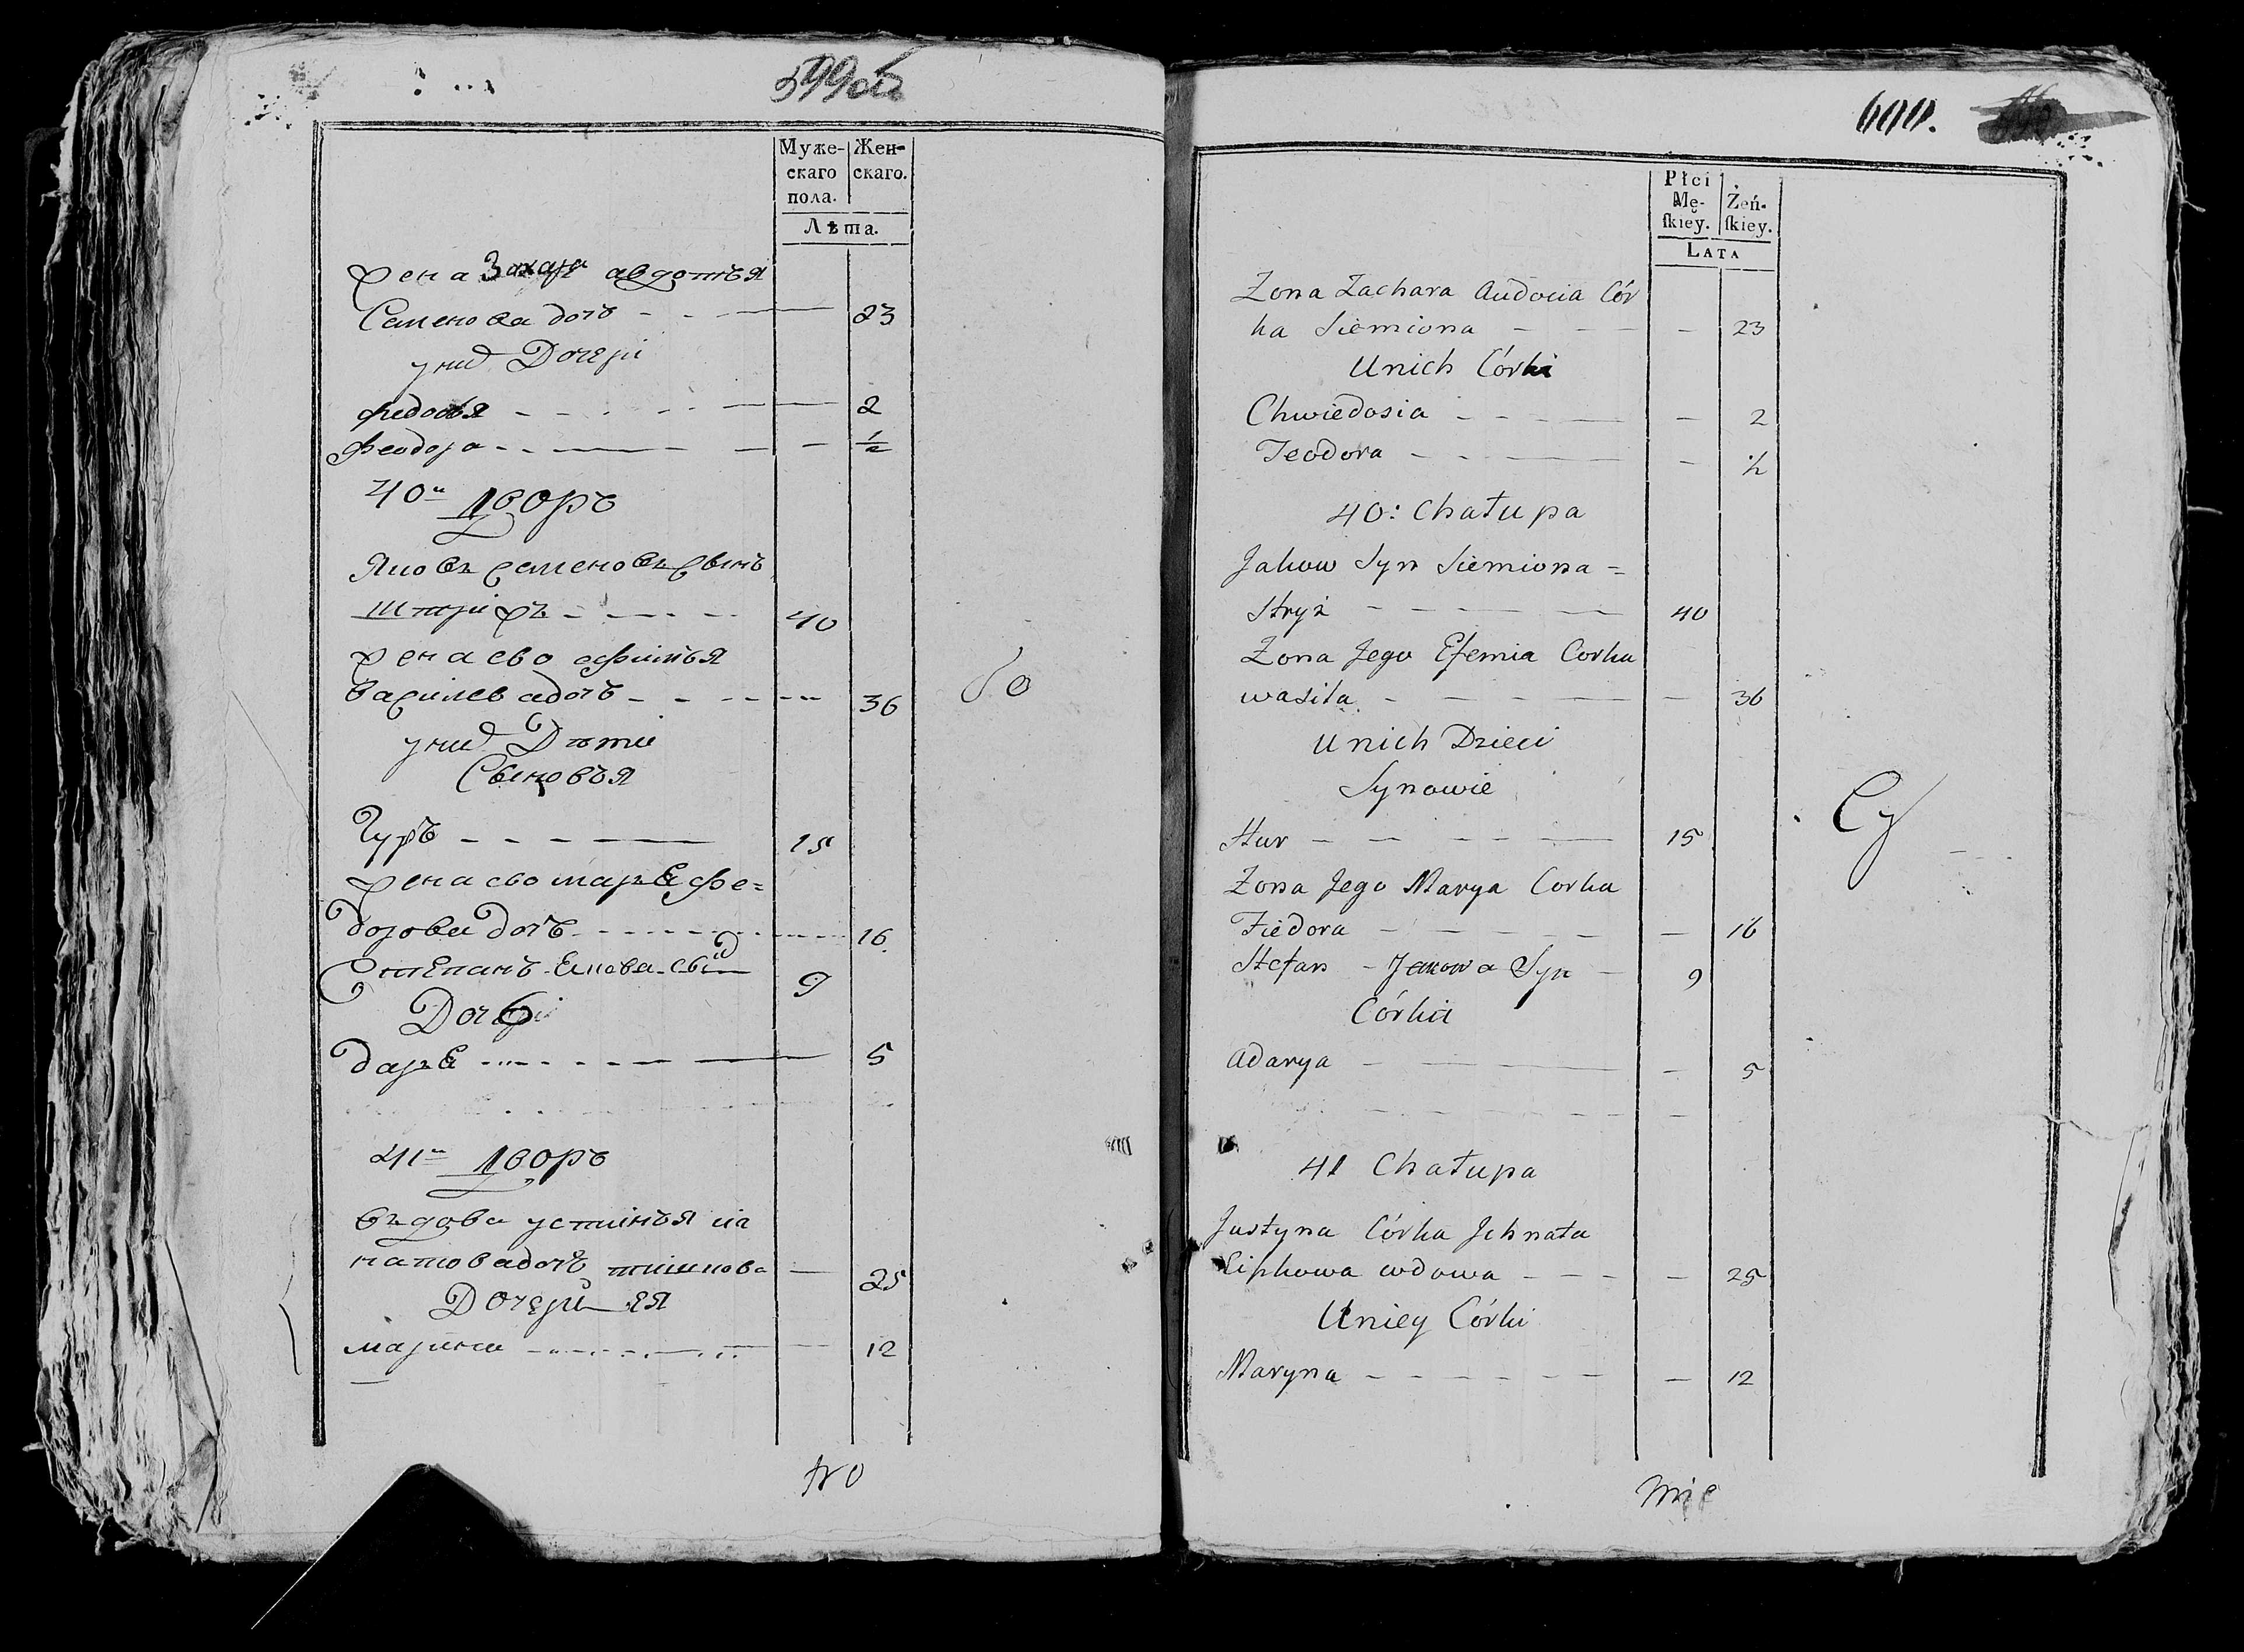 599об
Муже-
скаго
пола.
Жен-
скаго.
Лѣта.
Жена Захара авдотья
Семенова дочь - - — 23
у них Дочери
Федосья - - - — 2
Феодора - - — — 1/2
40й Дворъ
Яковъ семеновъ сынъ
Стрижъ - - - 40
Жена ево ефимья
василева дочь - - - - 36
у них Дѣти
Сыновья
Гуръ - - - — 15
Жена ево марья фе=
дорова дочь - - - - 16
Степанъ Якова сын 9
Дочь
дарья - - - - — 5
41й Дворъ
въдова устинья иг
натова дочь — 25
Дочери ея
марина - - - - — 12
600.
Płci
Mę-
skiey.
Żeń-
skiey.
LATA
Zona Zachara Audocia Cór
ka Siemiona - — - 23
Unich Córki
Chwiedosia - - - — - 2
Teodora - - — - ½
40: Chałupa
Jakow Syn Siemiona =
Stryż - - — — 40
Zona Jego Efemia Corka
wasila - - - — - 36
Unich Dzieci
Synowie
Hur - - - — 15
Zona Jego Marya Corka
Fiedora - - - - — 16
Stefan - Jakowa Syn - 9
Córka
adarya - — - 5
41 Chałupa
Justyna Córka Jhnata
Cipkowa wdowa - - - - 25
Uniey Córki
Maryna - - - - - - — 12